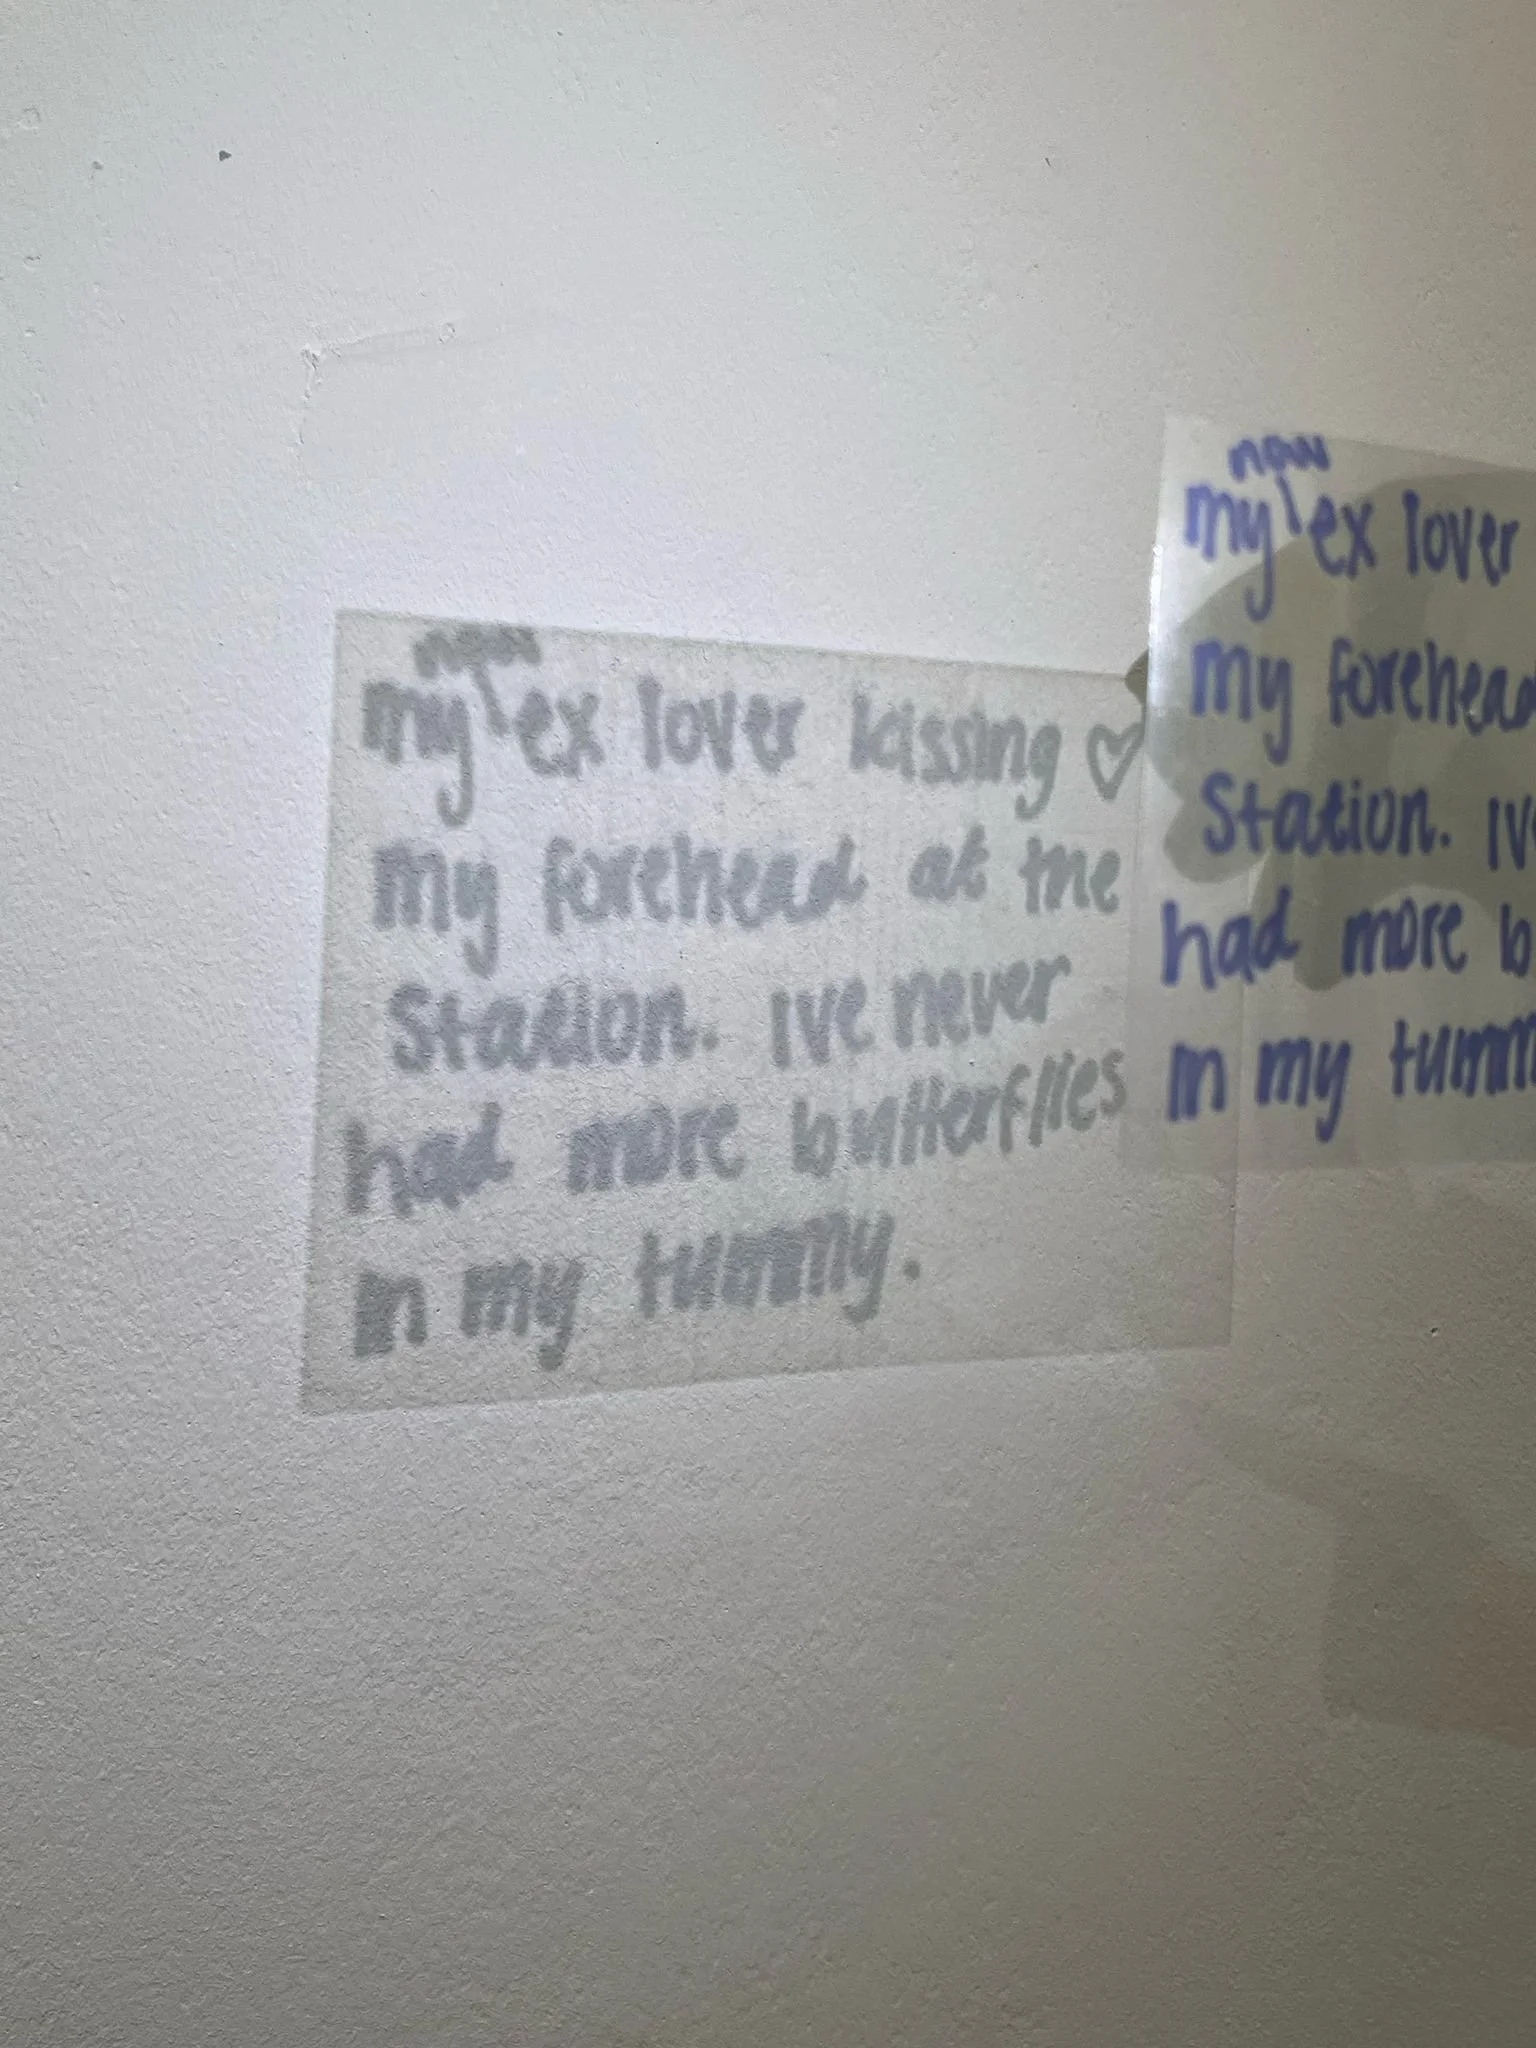 now
my \ ex lover kissing ♡
my forehead at the
Station. Ive never
had more butterflies
in my tummy.
now
my \ ex lover
my forehead
Station. Iv
had more b
in my tumm